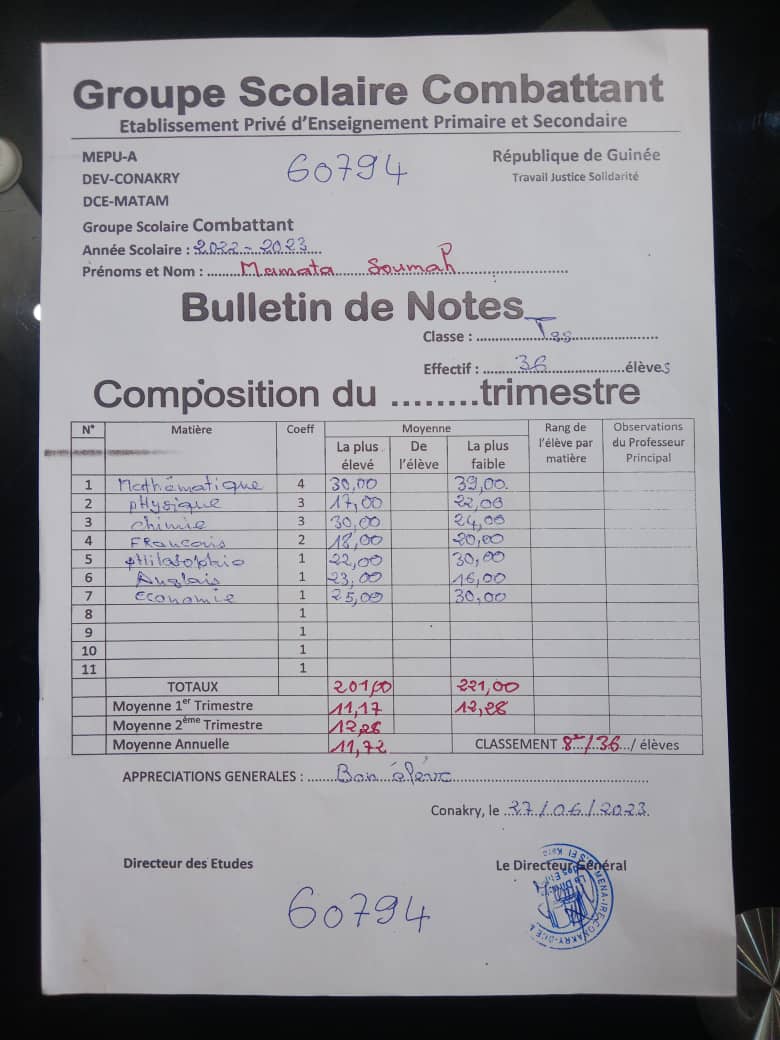 Groupe Scolaire Combattant
Etablissement Privé d'Enseignement Primaire et Secondaire
MEPU-A
DEV-CONAKRY
DCE-MATAM
60794
République de Guinée
Travail Justice Solidarité
Groupe Scolaire Combattant
Année Scolaire : 2022-2023
Prénoms et Nom : Mamata Soumah
Bulletin de Notes
Classe : Tss
Effectif : 36 élèves
Composition du ........trimestre
N° Matière Coeff Moyenne Rang de l'élève par matière Observations du Professeur Principal
La plus élevé De l'élève La plus faible
1 Mathématique 4 30,00 39,00
2 pHysique 3 17,00 22,00
3 chimie 3 30,00 24,00
4 FRancais 2 18,00 20,00
5 pHilosophie 1 22,00 30,00
6 Anglais 1 23,00 16,00
7 Economie 1 25,00 30,00
8 1
9 1
10 1
11 1
TOTAUX 201,00 221,00
Moyenne 1er Trimestre 11,17 12,28
Moyenne 2ème Trimestre 12,28
Moyenne Annuelle 11,72 CLASSEMENT 8e/36/ élèves
APPRECIATIONS GENERALES : Bon élève
Conakry, le 27/06/2023
Directeur des Etudes Le Directeur Général
60794